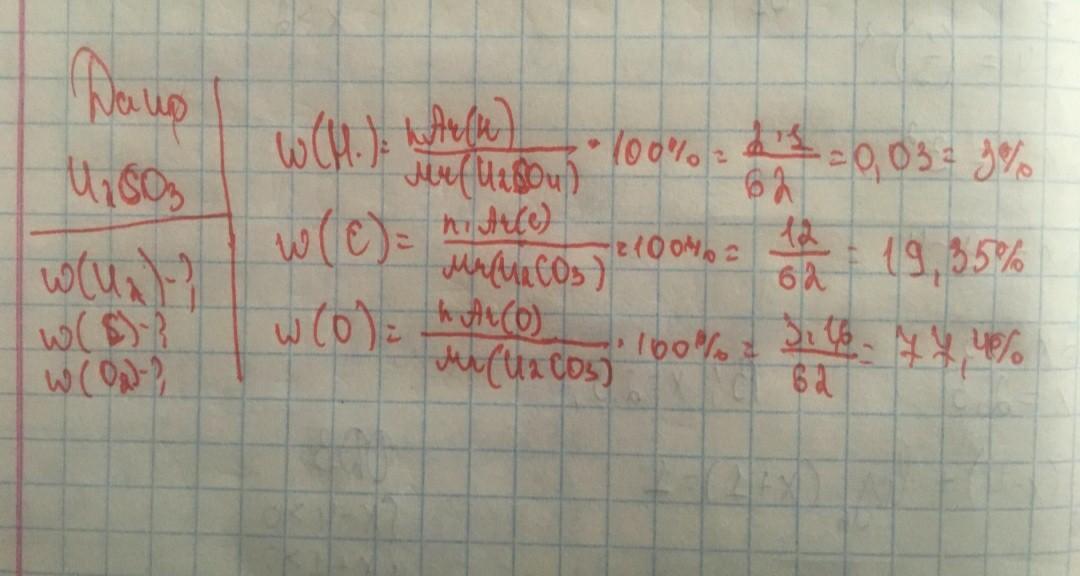 Дано
H₂SO₃
w(H₂)-?
w(S)-?
w(O₂)-?
w(H.) = nAr(H) / Mr(H₂SO₄) · 100% = 2·1 / 62 = 0,03 = 3%
w(C) = n·Ar(C) / Mr(H₂CO₃) ·100% = 12 / 62 = 19,35%
w(O) = nAr(O) / Mr(H₂CO₃) · 100% = 3·16 / 62 = 77,4%